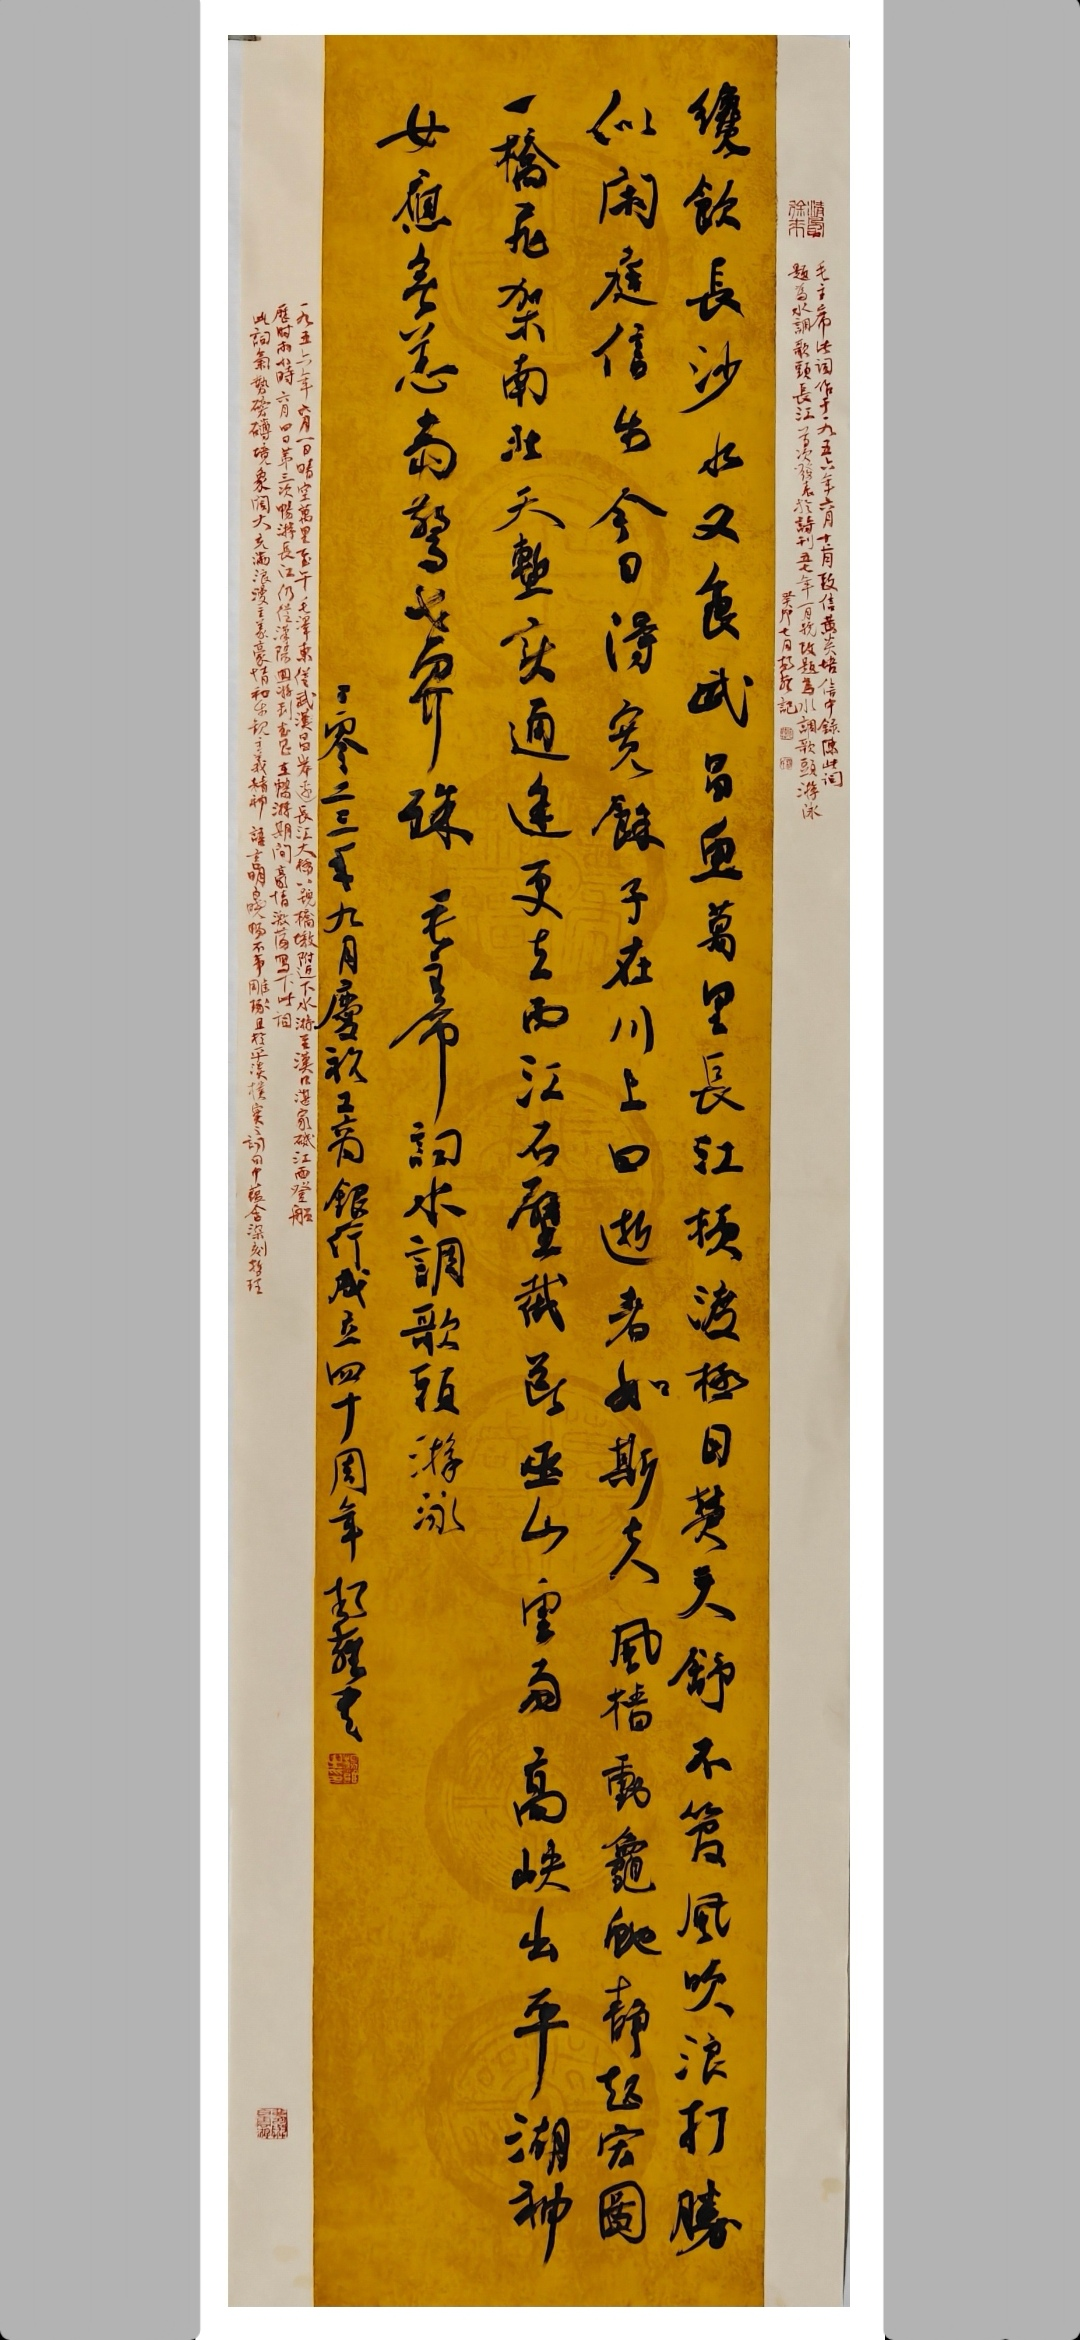 毛主席此词作于一九五六年六月十二月致信黄炎培信中錄陳此詞
題為水調歌頭長江首次發表於詩刊五七年一月號改題為水調歌頭游泳
癸卯七月 記
纔飲長沙水又食武昌魚萬里長江横渡極目楚天舒不管風吹浪打勝
似閑庭信步今日得寬餘子在川上曰逝者如斯夫風檣動龜蛇静起宏圖
一橋飛架南北天塹变通途更立西江石壁截斷巫山雲雨高峡出平湖神
女應無恙當驚世界殊 毛主席詞水調歌頭游泳
二零二三年九月慶祝工商銀行成立四十周年 書
一九五六年六月一日晴空萬里至午毛澤東從武漢武昌岸邊長江大橋八號橋墩附近下水游至漢口諶家磯江面登船
歷时兩小時六月四日第三次暢游長江仍從漢陽游到武昌在暢游期間豪情激蕩寫下此詞
此詞氣勢磅礴境象闊大充滿浪漫主義豪情和樂觀主義精神語言明白曉暢不事雕琢且於平淡樸實之詞句中蘊含深刻哲理